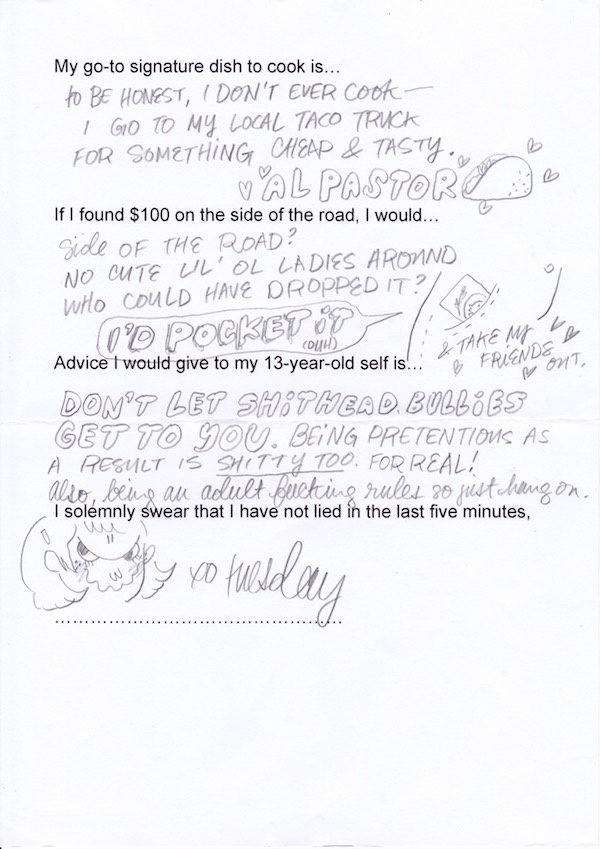 My go-to signature dish to cook is…
to BE HONEST, I DON'T EVER COOK—
I GO TO MY LOCAL TACO TRUCK
FOR SOMETHING CHEAP & TASTY.
AL PASTOR
If I found $100 on the side of the road, I would…
Side OF THE ROAD?
NO CUTE LIL' OL LADIES AROUND
WHO COULD HAVE DROPPED IT?
I'D POCKET iT
(DUH)
& TAKE MY
FRIENDS
OUT.
Advice I would give to my 13-year-old self is…
DON'T LET SHiTHEAD BULLiES
GET TO YOU. BEING PRETENTIOUS AS
A RESULT IS SHiTTY TOO. FOR REAL!
Also, being an adult fucking rules so just hang on.
I solemnly swear that I have not lied in the last five minutes,
xo tuesday